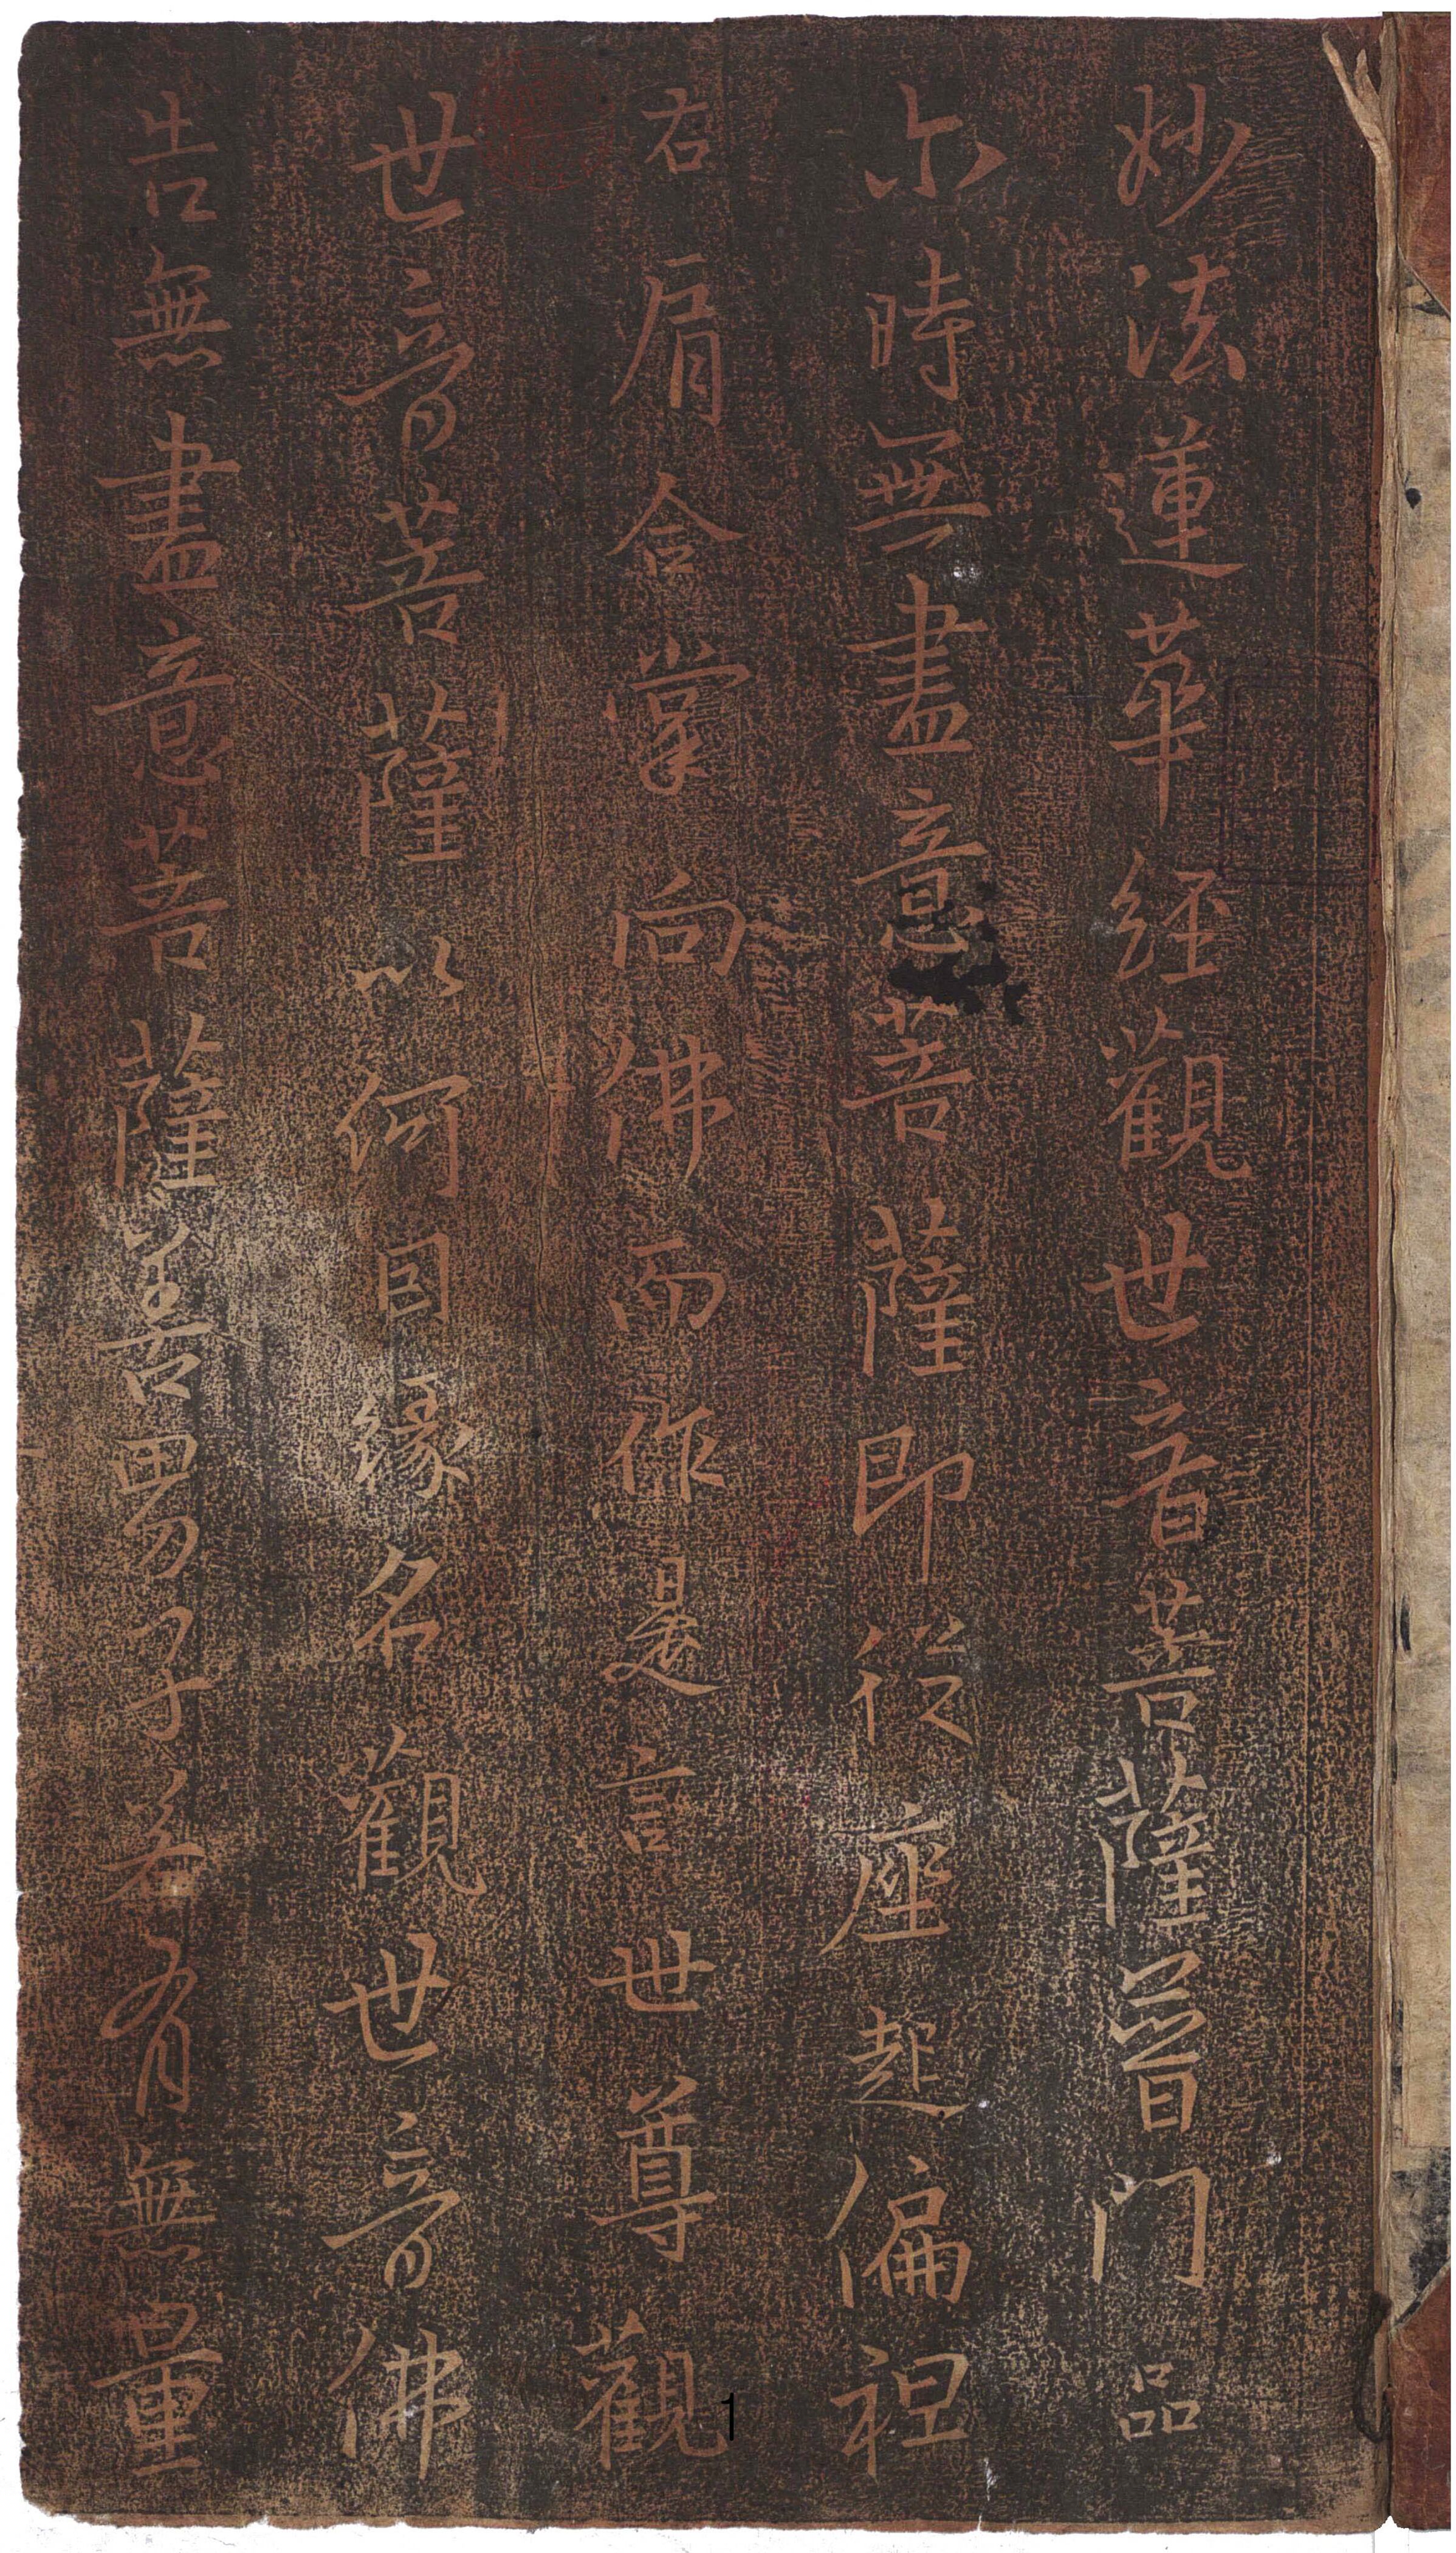 妙法蓮華経觀世音菩薩普門品
尓時無盡意菩薩即從座起偏袒
右肩合掌向佛而作是言世尊觀
世音菩薩以何因緣名觀世音佛
告無盡意菩薩善男子若有無量
1